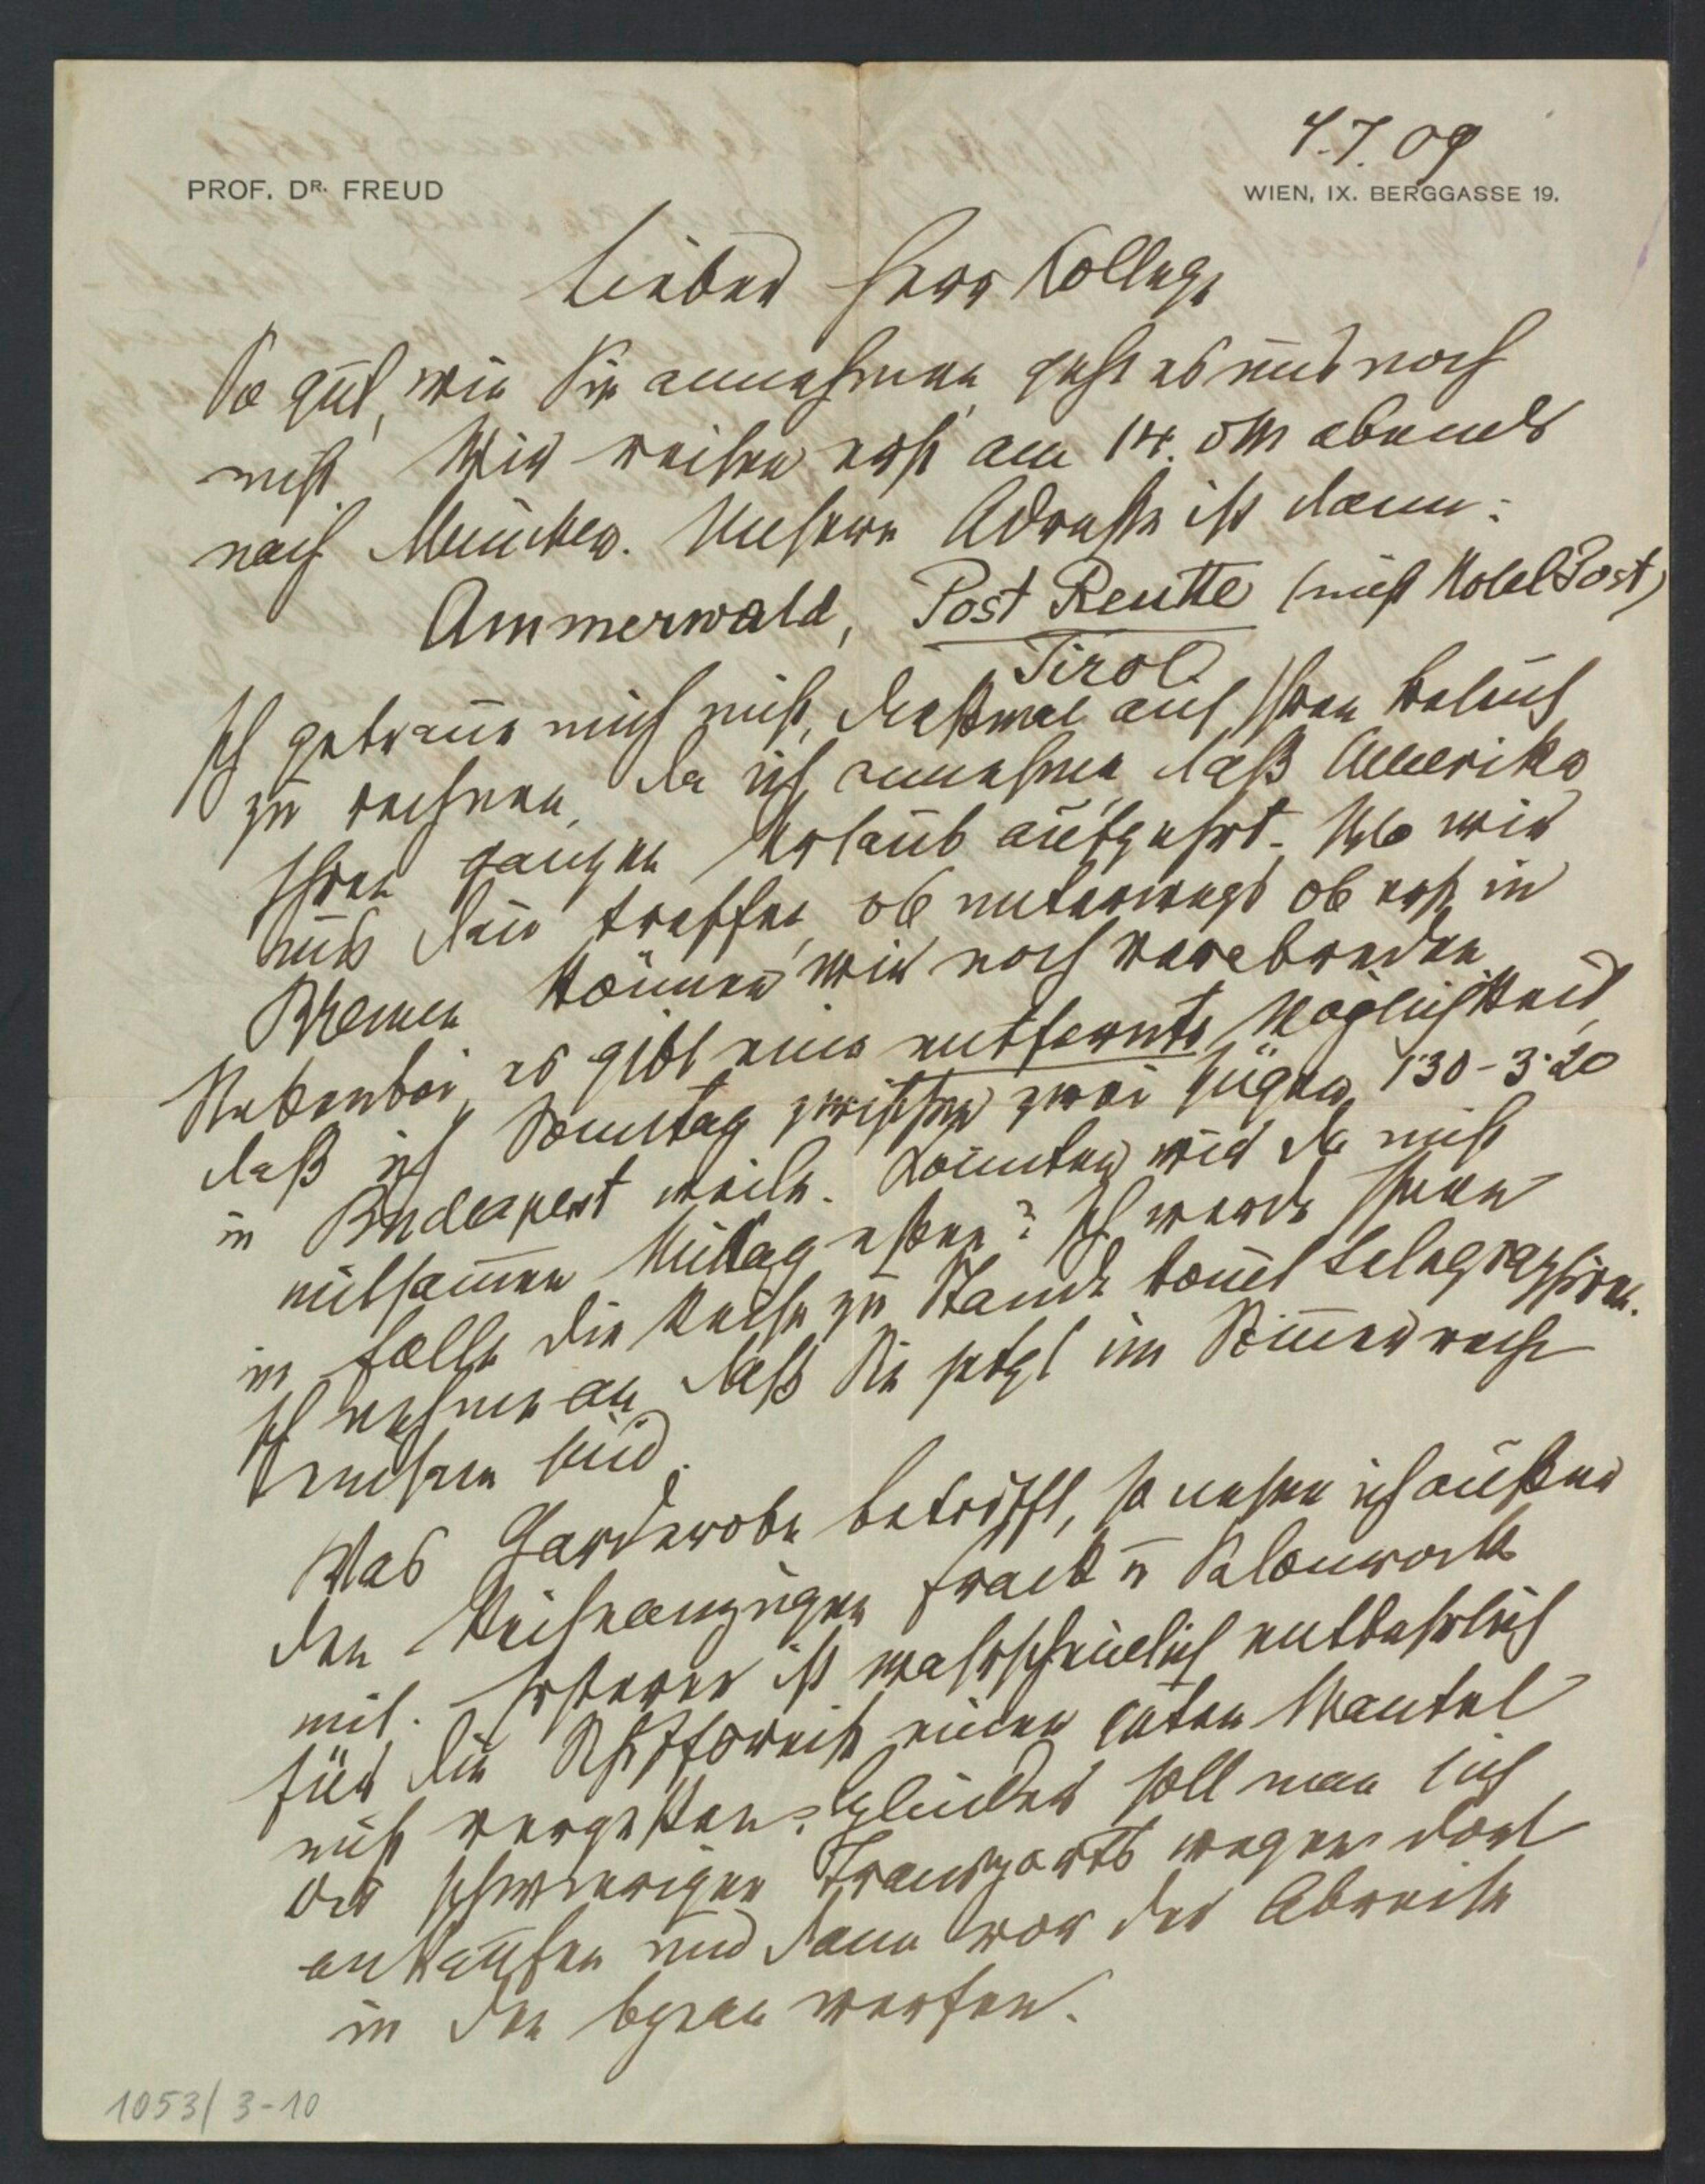 4.7.09
PROF. DR. FREUD
WIEN, IX. BERGGASSE 19.
Lieber Herr College
So gut, wie Sie annehmen, geht es uns noch
nicht. Wir reisen erst am 14. dM abends
nach München. Unsere Adresse ist dann:
Ammerwald, Post Reutte (nicht Hotel Post)
Tirol.
Ich getraue mich nicht, diesmal auf Ihren Besuch
zu rechnen, da ich annehme, daß Amerika
Ihren ganzen Urlaub aufzehrt. Wo wir
uns dann treffen, ob unterwegs ob erst in
Bremen können wir noch verabreden.
Nebenbei, es gibt eine entfernte Möglichkeit,
daß ich Sonntag zwischen zwei Zügen 1·30 - 3·20
in Budapest weile. Könnten wir da nicht
mitsammen Mittag essen? Ich werde Ihnen
im Falle die Reise zu Stande kommt telegraphiren.
Ich nehme an, daß Sie jetzt im Sommer recht
sind.
Was Garderobe betrifft, so nehme ich außer
den Reiseanzügen Frack u Salonrock
mit. Ersterer ist wahrscheinlich entbehrlich
für die Schiffsreise einen guten Mantel
nicht vergessen. Cylinder soll man sich
des schwierigen Transports wegen dort
ankaufen und dann vor der Abreise
in den werfen.
1053/3-10